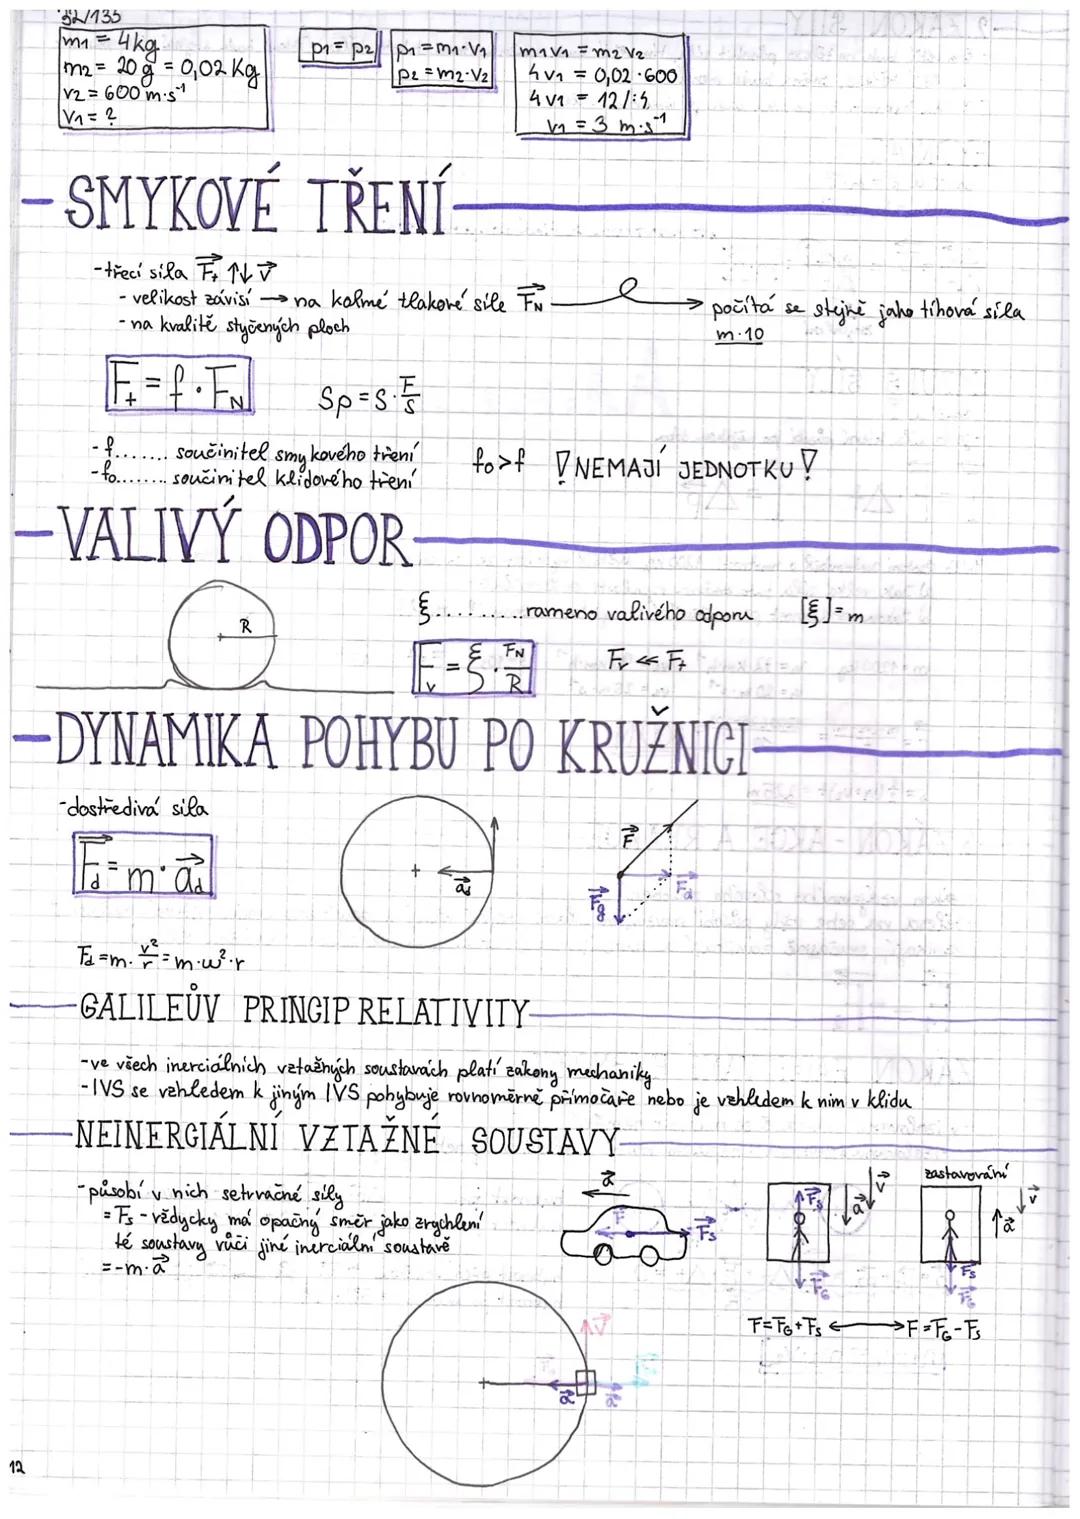 32/135
m₁ = 4kg
m₂ = 20 g = 0,02 Kg
v₂ = 600 m·s⁻¹
v₁ = ?
p₁ = p₂
p₁ = m₁·v₁
p₂ = m₂·v₂
m₁v₁ = m₂v₂
4v₁ = 0,02·600
4v₁ = 12 /:4
v₁ = 3 m·s⁻¹
- SMYKOVÉ TŘENÍ
- třecí síla F⃗ₜ ↑↓ v⃗
- velikost závisí → na kolmé tlakové síle F⃗N → počítá se stejně jako tíhová síla
m·10
- na kvalitě styčených ploch
Fₜ = f·FN
Sp = S·F/S
- f....... součinitel smykového tření
- f₀........ součinitel klidového tření
f₀>f ! NEMAJÍ JEDNOTKU !
- VALIVÝ ODPOR
R
ξ..........rameno valivého odporu [ξ]=m
Fv = ξ·FN/R
Fv ≪ Fₜ
- DYNAMIKA POHYBU PO KRUŽNICI
- dostředivá síla
F⃗d = m·a⃗d
a⃗d
F⃗
F⃗g
F⃗d
Fd = m·v²/r = m·ω²·r
- GALILEŮV PRINCIP RELATIVITY
- ve všech inerciálních vztažných soustavách platí zákony mechaniky
- IVS se vzhledem k jiným IVS pohybuje rovnoměrně přímočaře nebo je vzhledem k nim v klidu
- NEINERCIÁLNÍ VZTAŽNÉ SOUSTAVY
- působí v nich setrvačné síly
= Fs - vždycky má opačný směr jako zrychlení
té soustavy vůči jiné inerciální soustavě
= -m·a⃗
a⃗
F
F⃗s
F⃗s
a⃗
v⃗
F⃗G
zastavování
v⃗
a⃗
F⃗s
F⃗G
F=FG+Fs ↔ F=FG-Fs
v⃗
a⃗
a⃗
12